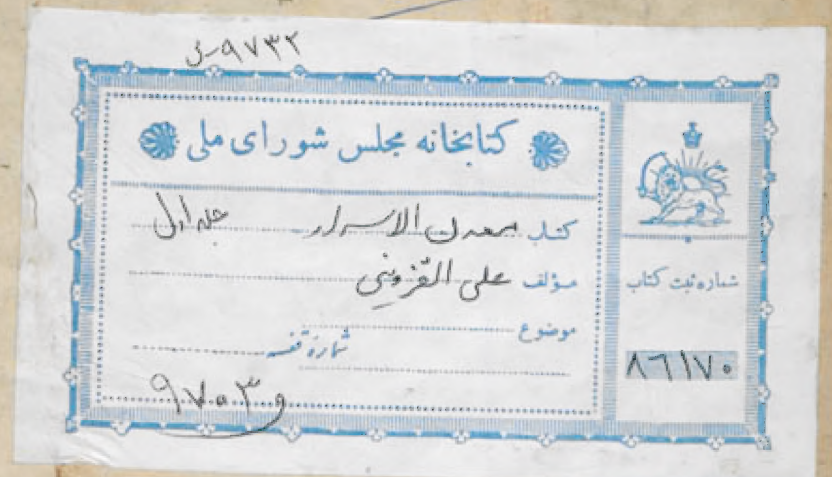 ۹۷۳۲
کتابخانه مجلس شورای ملی
کتاب معدن الاسرار جلد اول
مؤلف علی القزوینی
موضوع
شماره قفسه
شماره ثبت کتاب
۸۶۱۷۰